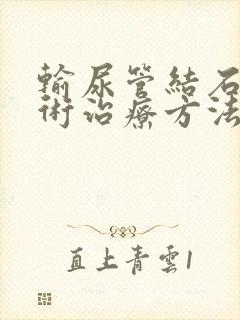 輸尿管結石
術治療方法
直上青雲1